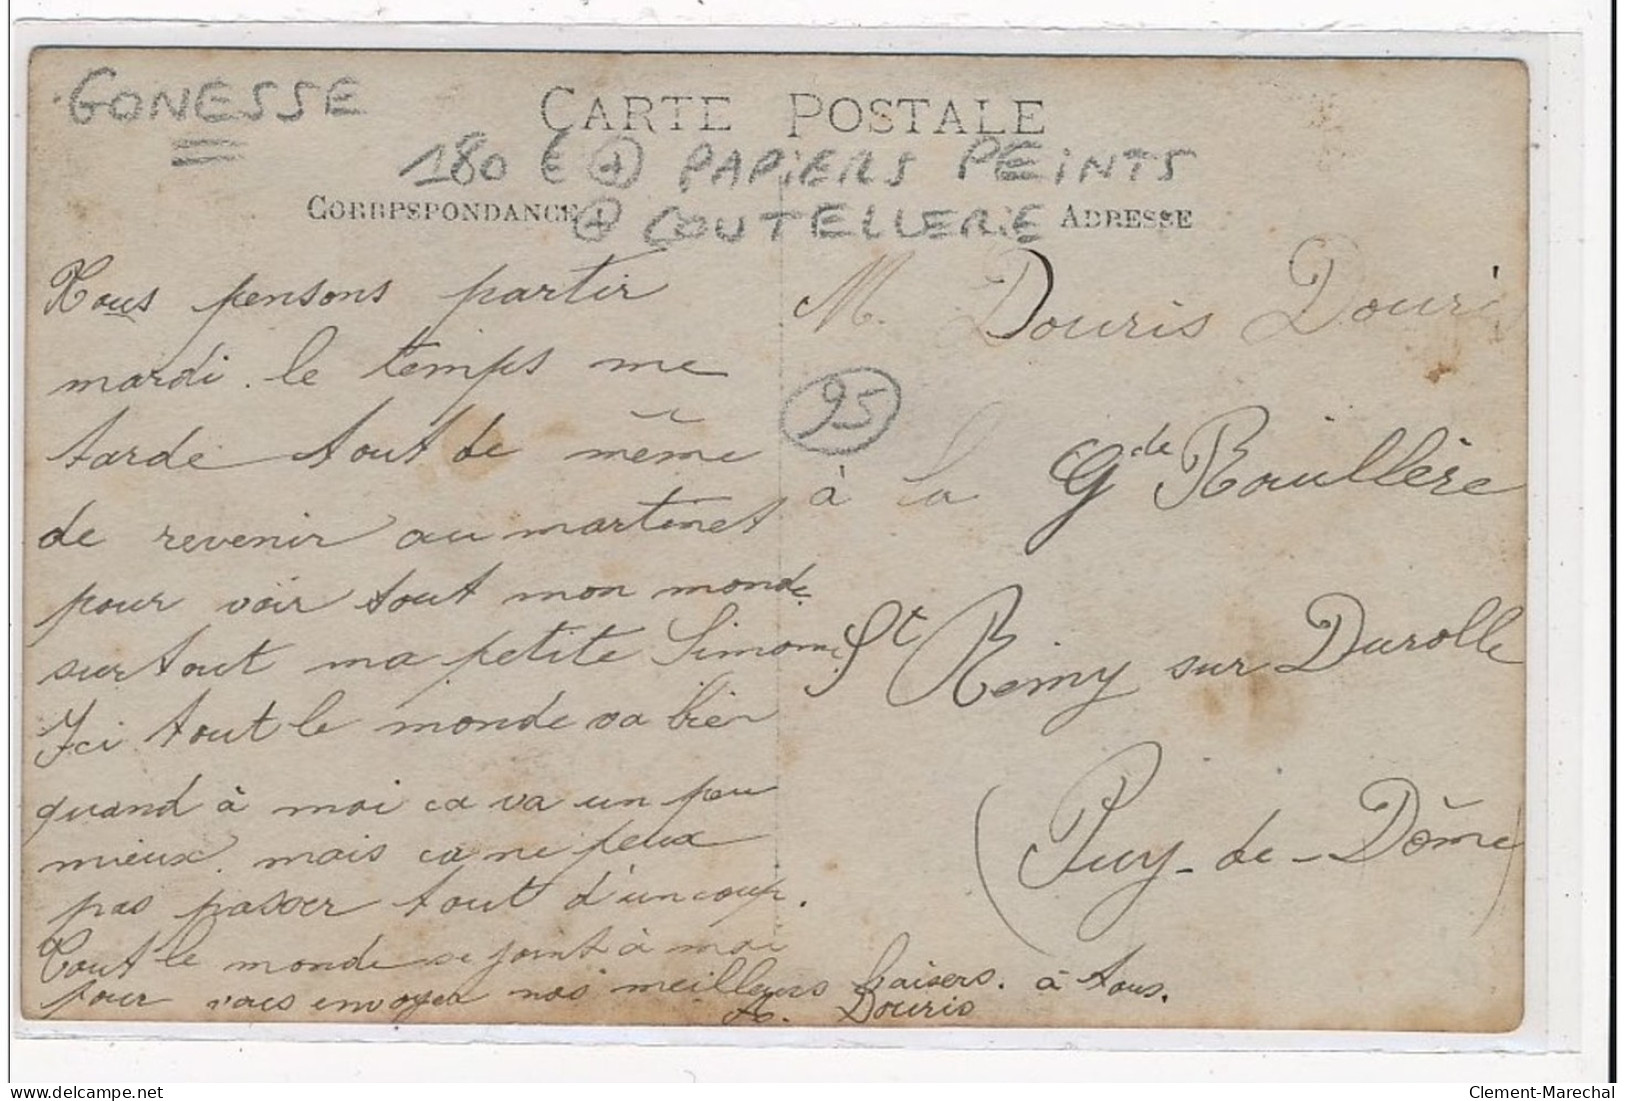 GONESSE
CARTE POSTALE
180 € + PAPIERS PEINTS
CORRPSPONDANCE
+ COUTELLERIE
ADRESSE
Nous pensons partir
mardi. le temps me
tarde tout de même
de revenir au martinet
pour voir tout mon monde
surtout ma petite Simone
Ici tout le monde va bien
quand à moi ca va un peu
mieux. mais ca ne peux
pas passer tout d'un coup.
Tout le monde se joint à moi
pour vous envoyer nos meilleurs baisers. à tous.
A. Douris
M. Douris Douris
95
à la Gde Rouillère
St Rémy sur Durolle
(Puy-de-Dôme)
delcampe.net
Clement-Marechal